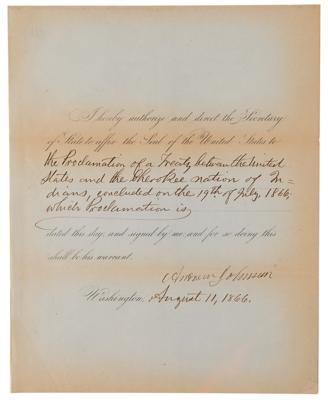 I hereby authorize and direct the Secretary
of State to affix the Seal of the United States to
the Proclamation of a Treaty between the United
States and the Cherokee nation of In-
dians, concluded on the 19th of July, 1866,
which Proclamation is
dated this day, and signed by me, and for so doing this
shall be his warrant.
Andrew Johnson
Washington, August 11, 1866.